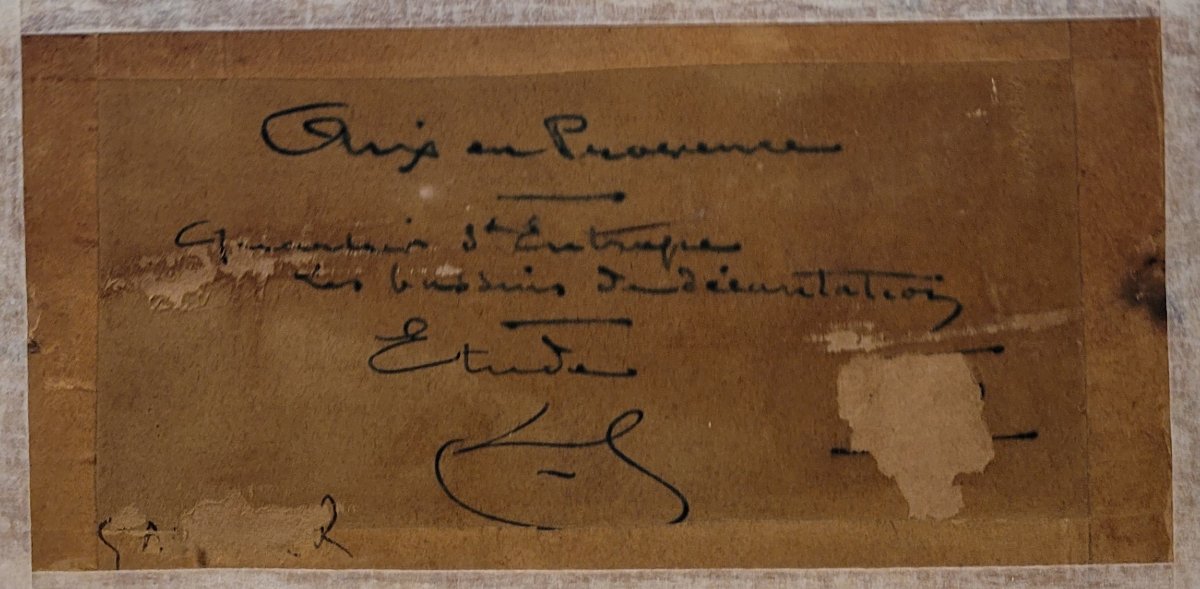 Aix en Provence
Quartier St Eutrope
Les bassins de décantation
Etude